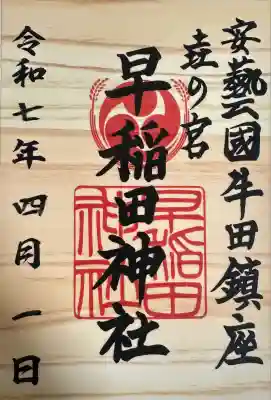 安藝國牛田鎮座
壵の宮
早稲田神社
早稲田
神社
令和七年四月一日